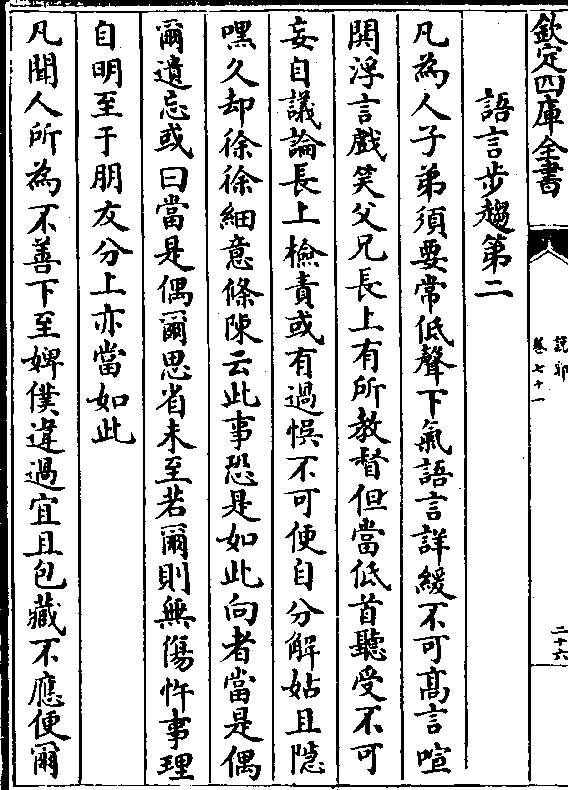 欽定四庫全書
說郛
卷七十一
二十六
語言步趨第二
凡為人子弟須要常低聲下氣語言詳緩不可髙言喧
閧浮言戲笑父兄長上有所教督但當低首聽受不可
妄自議論長上檢責或有過悞不可便自分解姑且隠
嘿久却徐徐細意條陳云此事恐是如此向者當是偶
爾遺忘或曰當是偶爾思省未至若爾則無傷忤事理
自明至于朋友分上亦當如此
凡聞人所為不善下至婢僕違過宜且包藏不應便爾